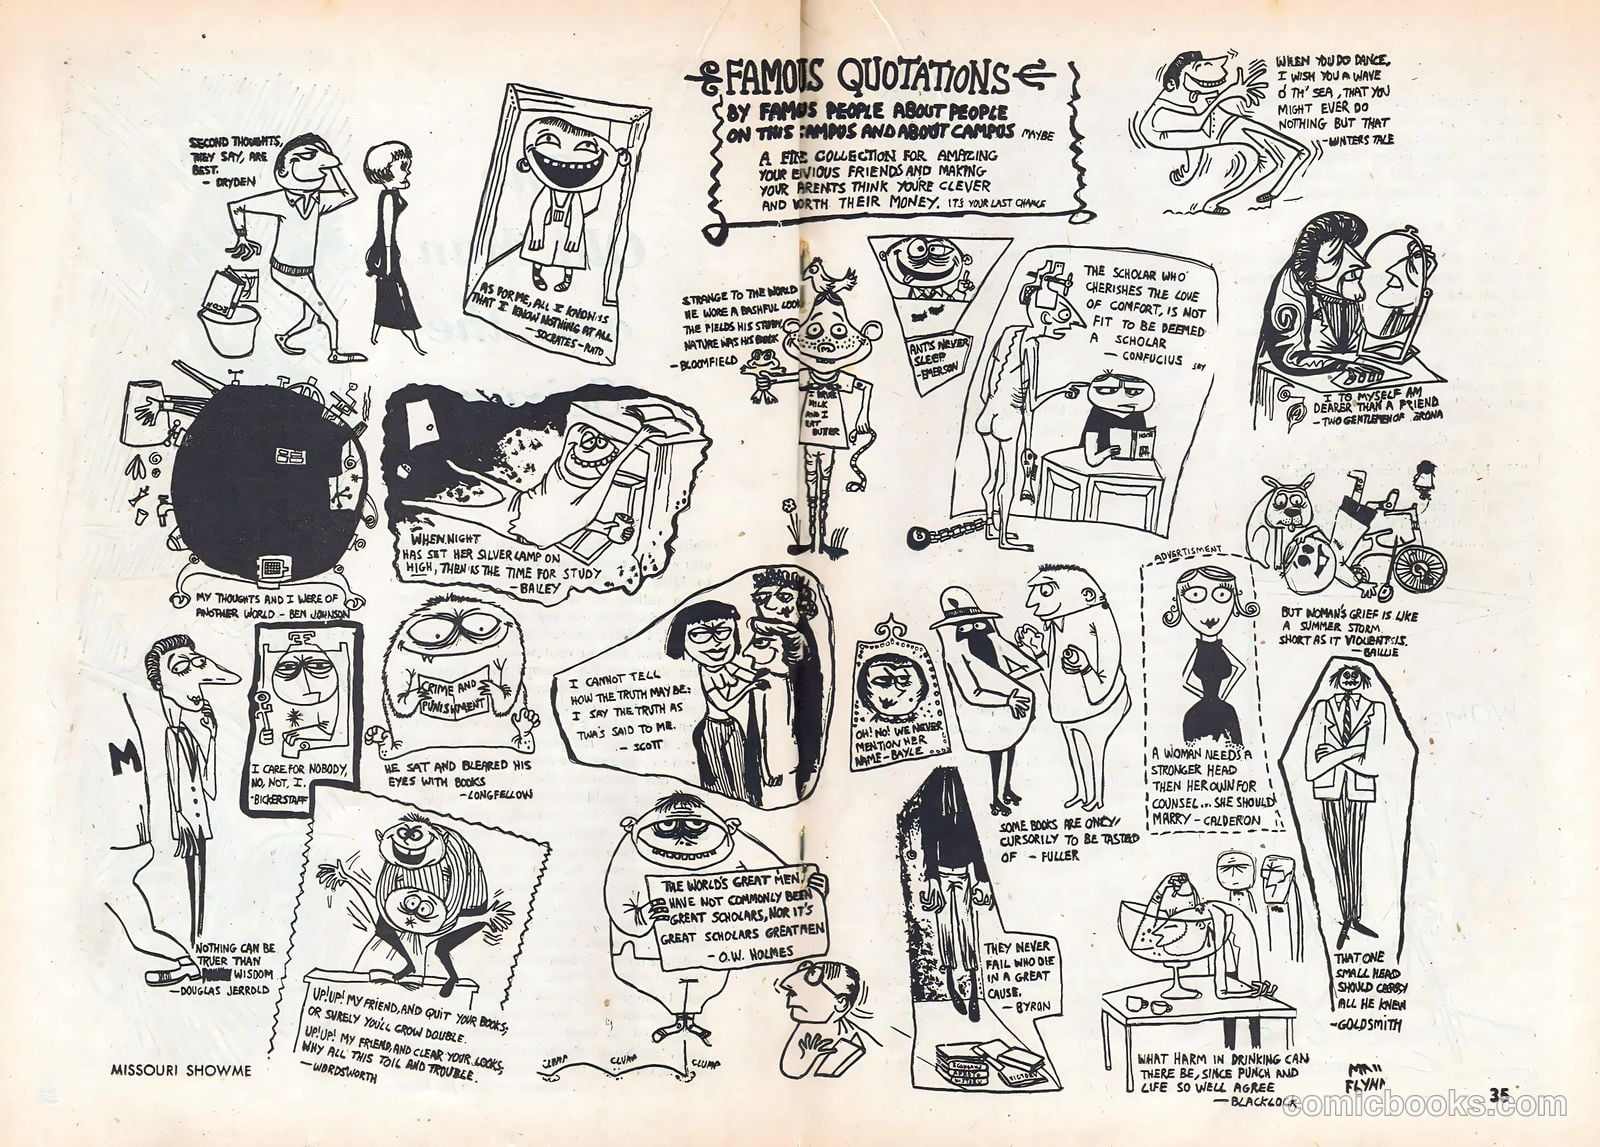 FAMOUS QUOTATIONS
BY FAMUS PEOPLE ABOUT PEOPLE
ON THIS CAMPUS AND ABOUT CAMPUS MAYBE
A FINE COLLECTION FOR AMAZING
YOUR ENVIOUS FRIENDS AND MAKING
YOUR PARENTS THINK YOU'RE CLEVER
AND WORTH THEIR MONEY. IT'S YOUR LAST CHANCE
SECOND THOUGHTS,
THEY SAY, ARE
BEST.
- DRYDEN
AS FOR ME, ALL I KNOW IS
THAT I KNOW NOTHING AT ALL
- SOCRATES - PLATO
STRANGE TO THE WORLD
HE WORE A BASHFUL LOOK
THE FIELDS HIS STUDY,
NATURE WAS HIS BOOK
- BLOOMFIELD
I DRINK
MILK
AND I
EAT
BUTTER
ANTS NEVER
SLEEP
- EMERSON
THE SCHOLAR WHO
CHERISHES THE LOVE
OF COMFORT, IS NOT
FIT TO BE DEEMED
A SCHOLAR
- CONFUCIUS SAY
WHEN YOU DO DANCE,
I WISH YOU A WAVE
O' TH' SEA, THAT YOU
MIGHT EVER DO
NOTHING BUT THAT
- WINTERS TALE
I TO MYSELF AM
DEARER THAN A FRIEND
- TWO GENTLEMEN OF
MY THOUGHTS AND I WERE OF
ANOTHER WORLD - BEN JOHNSON
WHEN NIGHT
HAS SET HER SILVER LAMP ON
HIGH, THEN IS THE TIME FOR STUDY
- BAILEY
BUT WOMAN'S GRIEF IS LIKE
A SUMMER STORM
SHORT AS IT VIOLENT IS.
- BAILLIE
M
NOTHING CAN BE
TRUER THAN
WISDOM
- DOUGLAS JERROLD
I CARE FOR NOBODY,
NO, NOT, I.
- BICKERSTAFF
CRIME AND
PUNISHMENT
HE SAT AND BLEARED HIS
EYES WITH BOOKS
- LONGFELLOW
I CANNOT TELL
HOW THE TRUTH MAY BE:
I SAY THE TRUTH AS
TWA'S SAID TO ME.
- SCOTT
OH! NO! WE NEVER
MENTION HER
NAME - BAYLE
SOME BOOKS ARE ONLY
CURSORILY TO BE TASTED
OF - FULLER
ADVERTISMENT
A WOMAN NEEDS A
STRONGER HEAD
THEN HER OWN FOR
COUNSEL... SHE SHOULD
MARRY - CALDERON
THAT ONE
SMALL HEAD
SHOULD CARRY
ALL HE KNEW
- GOLDSMITH
UP! UP! MY FRIEND, AND QUIT YOUR BOOKS,
OR SURELY YOU'LL GROW DOUBLE.
UP! UP! MY FRIEND, AND CLEAR YOUR LOOKS,
WHY ALL THIS TOIL AND TROUBLE.
- WORDSWORTH
THE WORLD'S GREAT MEN,
HAVE NOT COMMONLY BEEN
GREAT SCHOLARS, NOR IT'S
GREAT SCHOLARS GREAT MEN
- O.W. HOLMES
CLUMP
CLUMP
CLUMP
THEY NEVER
FAIL WHO DIE
IN A GREAT
CAUSE.
- BYRON
HISTORY
WHAT HARM IN DRINKING CAN
THERE BE, SINCE PUNCH AND
LIFE SO WELL AGREE
- BLACKLOCK
FLYNN
MISSOURI SHOWME
35
comicbooks.com